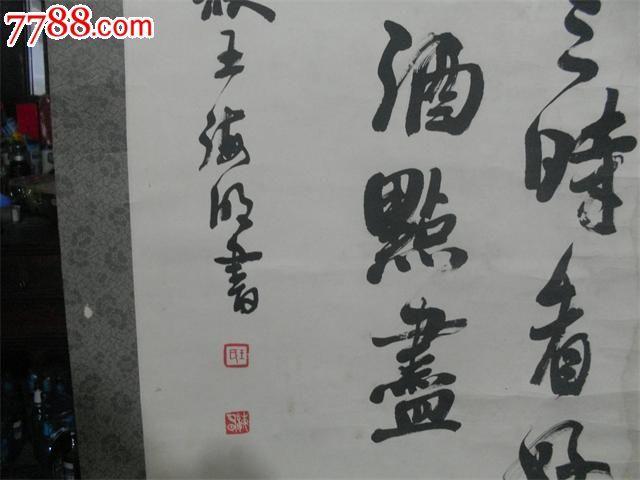 7788.com
三時看好
酒點盡
王海明書